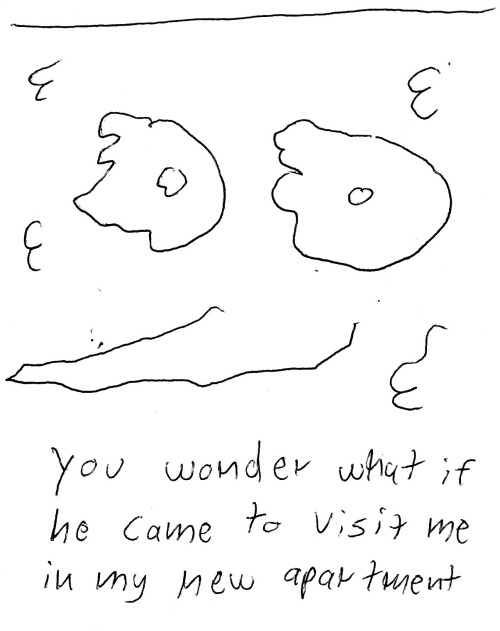 you wonder what if
he came to visit me
in my new apartment